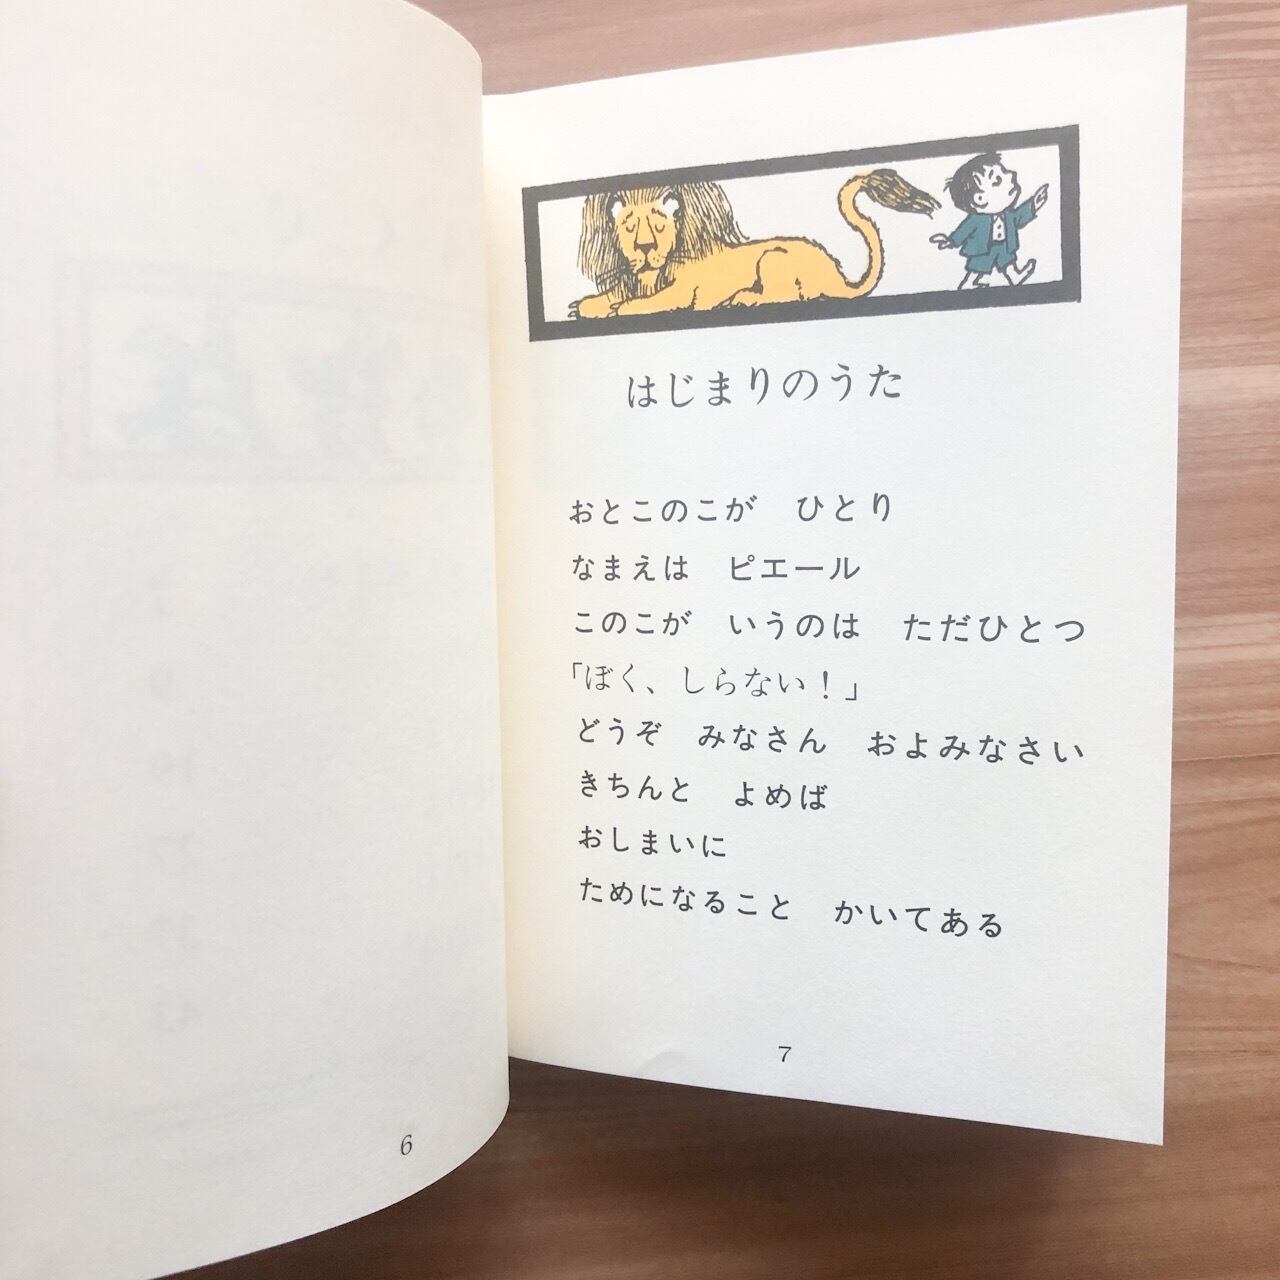 はじまりのうた
おとこのこが　ひとり
なまえは　ピエール
このこが　いうのは　ただひとつ
「ぼく、しらない！」
どうぞ　みなさん　およみなさい
きちんと　よめば
おしまいに
ためになること　かいてある
7
6